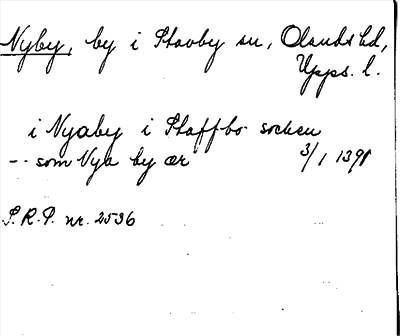 Nyby, by i Stavby sn, Olands hd,
Upps. l.
i Nyaby i Staffbo socken
-- som Nya by ær 3/1 1391
S.R.P. nr. 2536